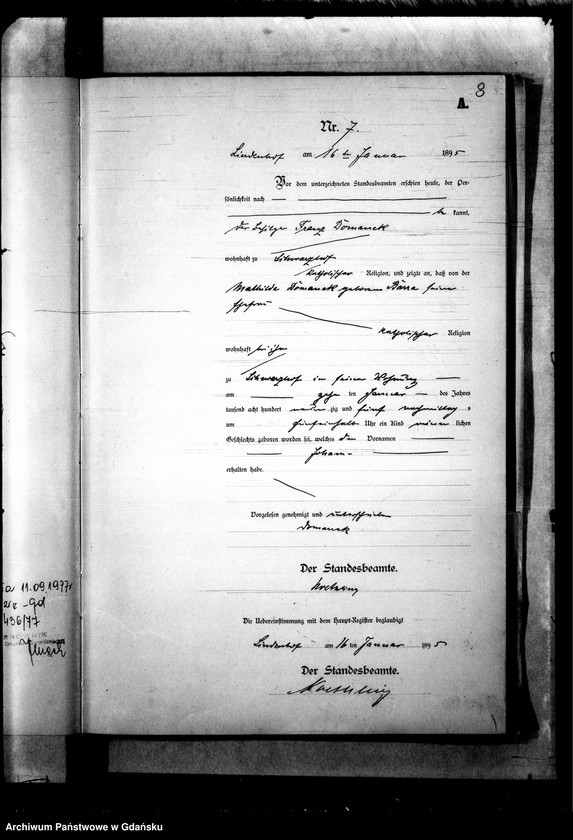 8
A.
Nr. 7.
Lindenhof am 16ten Januar 1895
Vor dem unterzeichneten Standesbeamten erschien heute, der Per-
sönlichkeit nach
be kannt,
der Besitzer Franz Domanek
wohnhaft zu Schwarzhof
katholischer Religion, und zeigte an, daß von der
Mathilde Domanek geborene Barra seiner
Ehefrau
katholischer Religion
wohnhaft bei ihm
zu Schwarzhof in seiner Wohnung
am zehn ten Januar des Jahres
tausend acht hundert neun zig und fünf nachmittag s
um Uhr ein Kind männ lichen
Geschlechts geboren worden sei, welches den Vornamen
Johann
erhalten habe.
Vorgelesen genehmigt und unterschrieben
Domanek
Der Standesbeamte.
Die Uebereinstimmung mit dem Haupt-Register beglaubigt
Lindenhof am 16 ten Januar 1895
Der Standesbeamte.
11.09.1977r
436/77
Archiwum Państwowe w Gdańsku